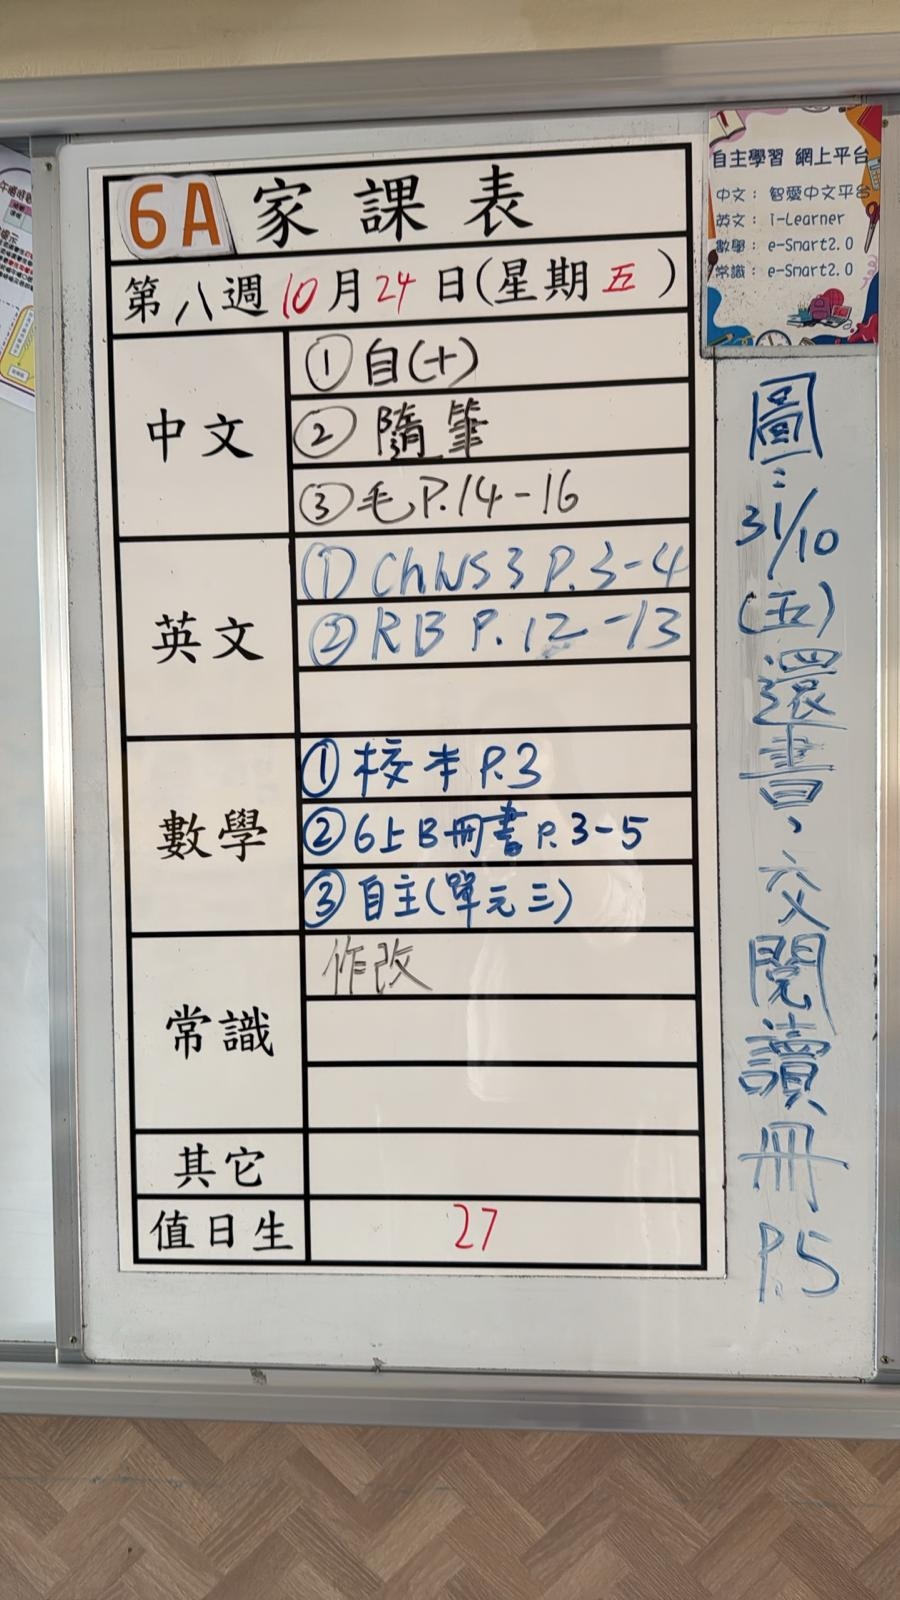 6A 家課表
第八週 10月24日(星期五)
中文
①自(十)
②隨筆
③毛P.14-16
英文
①ChWS3 P.3-4
②RB P.12-13
數學
①校本P.3
②6上B冊書P.3-5
③自主(單元三)
常識
作改
其它
值日生
27
自主學習 網上平台
中文: 智愛中文平台
英文: i-Learner
數學: e-Smart2.0
常識: e-Smart2.0
圖:31/10(五)還書,交閱讀冊P.5